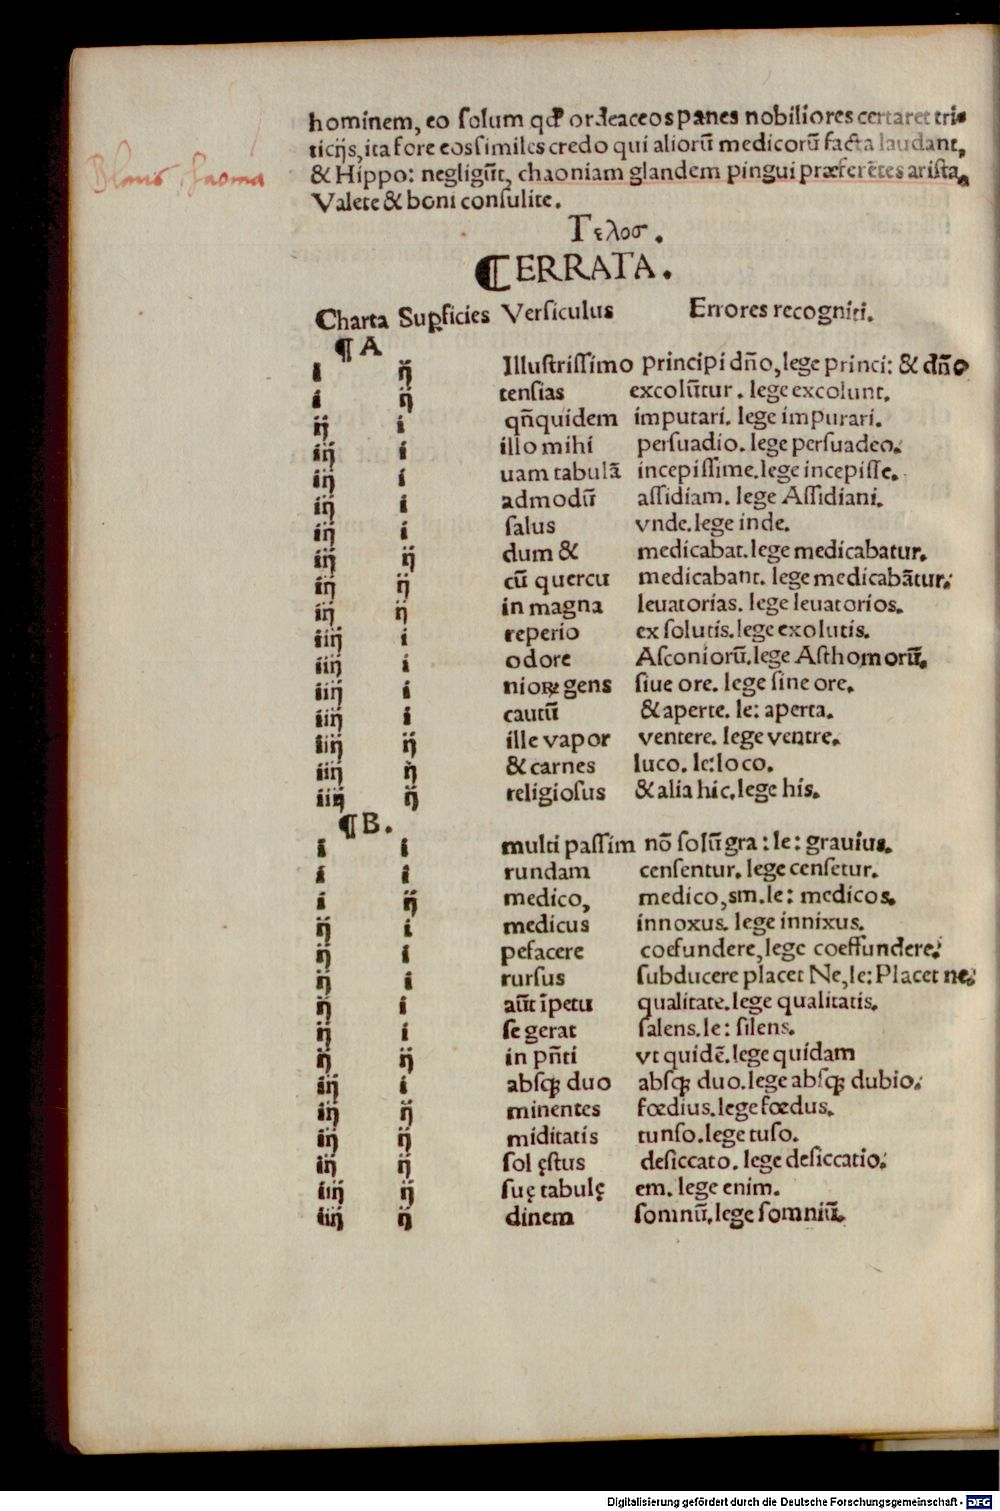 hominem, eo ſolum qđ ordeaceos panes nobiliores certaret tri
ticijs, ita fore eos ſimiles credo qui aliorū medicorū facta laudant,
& Hippo: negligūt, chaoniam glandem pingui præferētes ariſta,
Valete & boni conſulite.
Τελοσ.
¶ERRATA.
Charta Supficies Verſiculus Errores recogniti.
¶ A
i ij Illuſtriſſimo principi dn̄o, lege princi: & dn̄o
i ij tenſias excolūtur. lege excolunt.
ij i qn̄quidem imputari. lege impurari.
iij i illo mihi perſuadio. lege perſuadeo.
iij i uam tabulā incepiſſime. lege incepiſſe.
iij i admodū aſſidiam. lege Aſſidiani.
iij i ſalus vnde. lege inde.
iij ij dum & medicabat. lege medicabatur.
iij ij cū quercu medicabant. lege medicabātur.
iij ij in magna leuatorias. lege leuatorios.
iiij i reperio ex ſolutis. lege exolutis.
iiij i odore Aſconiorū. lege Aſthomorū.
iiij i nioꝝ gens ſiue ore. lege ſine ore.
iiij i cautū & aperte. le: aperta.
iiij ij ille vapor ventere. lege ventre.
iiij ij & carnes luco. le: loco.
iiij ij religioſus & alia hic. lege his.
¶ B.
i i multi paſſim nō ſolū gra: le: grauius.
i i rundam cenſentur. lege cenſetur.
i ij medico, medico, sm. le: medicos.
ij i medicus innoxus. lege innixus.
ij i pefacere coefundere, lege coeffundere.
ij i rurſus ſubducere placet Ne, le: Placet ne.
ij i aūt īpetu qualitate. lege qualitatis.
ij i ſe gerat ſalens. le: ſilens.
ij ij in pn̄ti vt quidē. lege quidam
iij i abſqꝫ duo abſqꝫ duo. lege abſqꝫ dubio.
iij ij minentes fœdius. lege fœdus.
iij ij miditatis tunſo. lege tuſo.
iij ij ſol ęſtus deſiccato. lege deſiccatio.
iiij ij ſuę tabulę em. lege enim.
iiij ij dinem ſomnū. lege ſomniū.
Digitalisierung gefördert durch die Deutsche Forschungsgemeinschaft - DFG